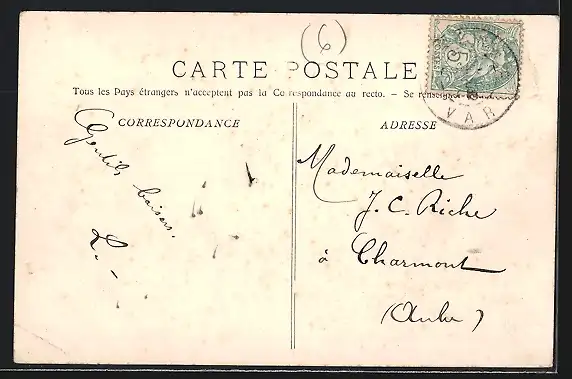 (6)
CARTE POSTALE
Tous les Pays étrangers n'acceptent pas la Correspondance au recto. — Se renseigner
CORRESPONDANCE
Gentils baisers.
L. -
ADRESSE
Mademoiselle
J. C. Riche
à Charmont
(Aube)
5
POSTES
VAR